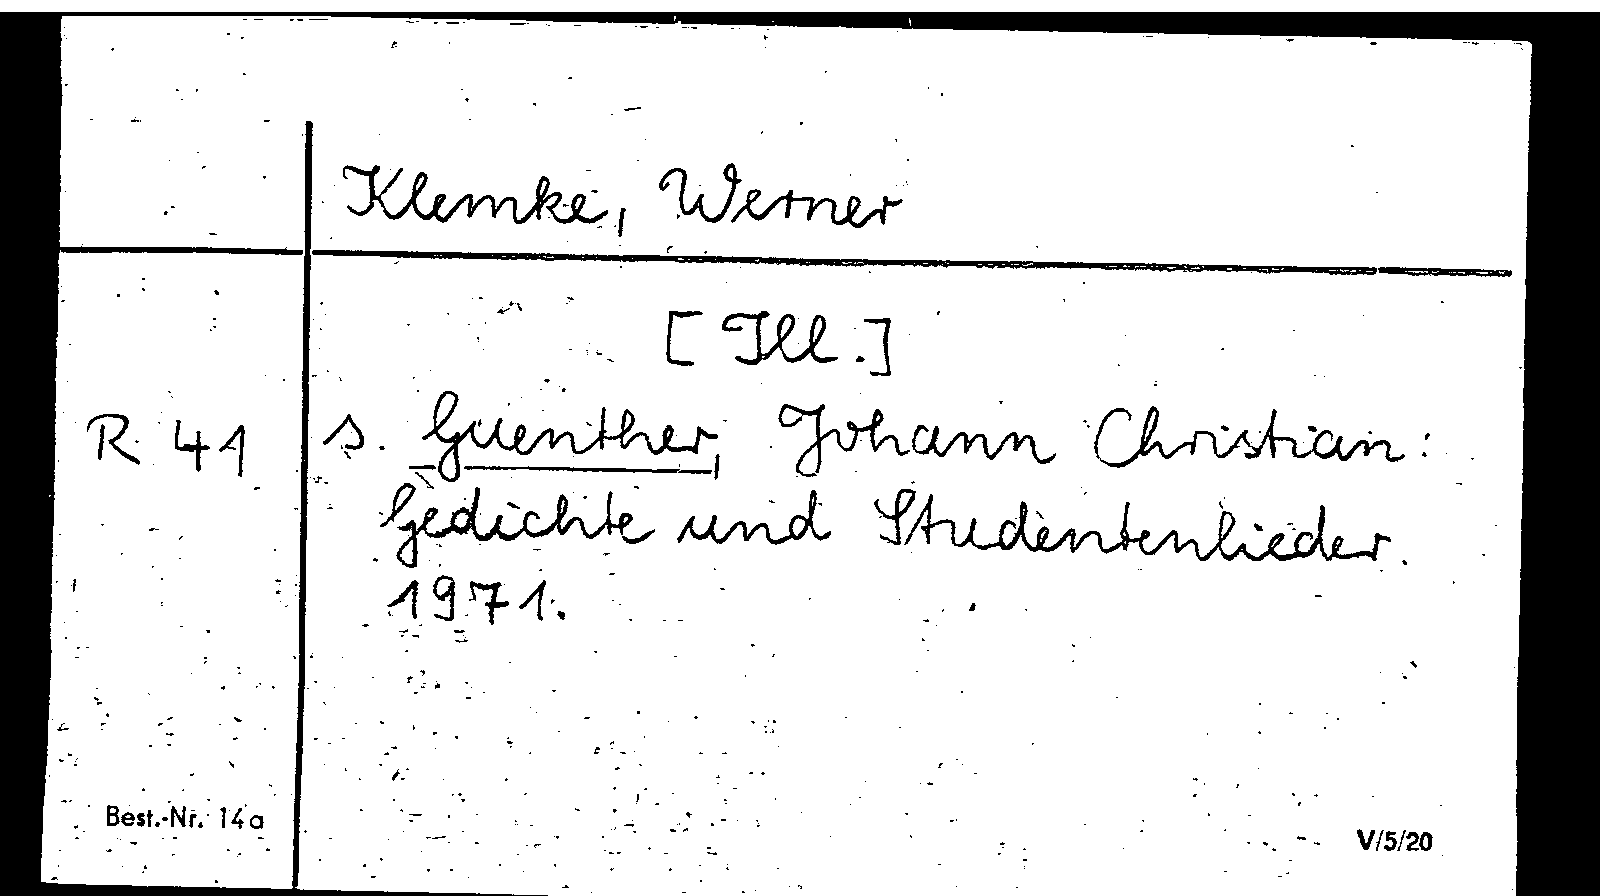 Klemke, Werner
[Ill.]
R 41 s. Guenther, Johann Christian:
Gedichte und Studentenlieder.
1971.
Best.-Nr. 14a
V/5/20